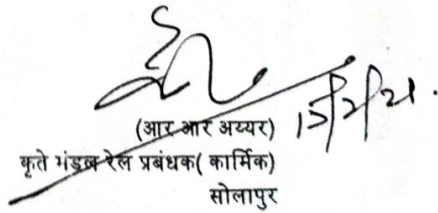 (आर आर अय्यर)
कृते मंडल रेल प्रबंधक( कार्मिक)
सोलापुर